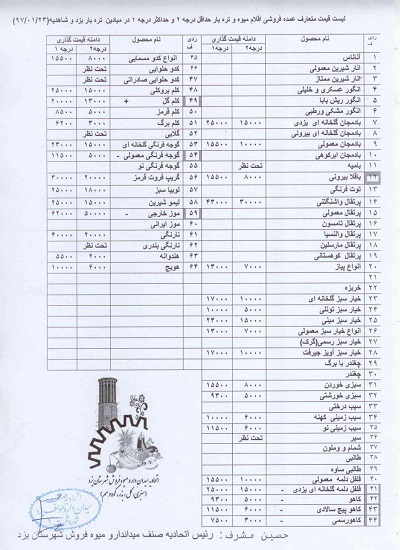 لیست قیمت متعارف عمده فروشی اقلام میوه و تره بار حداقل درجه ۲ و حداکثر درجه ۱ در میادین تره بار یزد و شاهدیه(۹۷/۰۱/۲۳)
ردیف نام محصول دامنه قیمت گذاری
درجه ۲ درجه ۱
۱ آناناس
۲ انار شیرین معمولی
۳ انار شیرین ممتاز
۴ انگور عسکری و خلیلی
۵ انگور ریش بابا
۶ انگور مشکی ورطبی
۷ بادمجان گلخانه ای یزدی ۱۵۰۰۰ ۲۵۰۰۰
۸ بادمجان گلخانه ای بیرونی
۹ بادمجان معمولی ۱۰۰۰۰ ۱۵۵۰۰
۱۰ بادمجان ابرکوهی
۱۱ بامیه تحت نظر
۱۲ باقلا بیرونی ۸۰۰۰ ۱۵۵۰۰
۱۳ توت فرنگی
۱۴ پرتقال واشنگتنی ۳۰۰۰۰ ۴۳۰۰۰
۱۵ پرتقال معمولی
۱۶ پرتقال تامسون
۱۷ پرتقال والنسیا
۱۸ پرتقال مارسلین
۱۹ پرتقال کوهستانی
۲۰ انواع پیاز ۷۰۰۰ ۱۳۰۰۰
۲۱
۲۲ خربزه
۲۳ خیار سبز گلخانه ای ۱۰۰۰۰ ۱۷۰۰۰
۲۴ خیار سبز تونلی ۵۰۰۰ ۱۰۰۰۰
۲۵ خیار سبز مینی ۱۵۰۰۰ ۲۳۰۰۰
۲۶ انواع خیار سبز معمولی ۷۰۰۰ ۱۳۰۰۰
۲۷ خیار سبز رسمی(گرگ)
۲۸ خیار سبز آویز جیرفت ۱۰۰۰۰ ۱۷۰۰۰
۲۹ چغندر با برگ
۳۰ چغندر
۳۱ سبزی خوردن ۸۰۰۰ ۱۵۵۰۰
۳۲ سبزی خورشتی ۵۰۰۰ ۹۳۰۰
۳۳ سیب درختی
۳۴ سیب زمینی کهنه ۶۰۰۰ ۱۰۰۰۰
۳۵ سیب زمینی نو ۶۰۰۰ ۱۱۵۰۰
۳۶ سیر تحت نظر
۳۷ شمام و وملون
۳۸ طالبی
۳۹ طالبی ساوه
۴۰ فلفل دلمه معمولی ۱۰۰۰۰ ۱۵۵۰۰
۴۱ فلفل دلمه گلخانه ای یزدی - ۱۵۰۰۰ ۲۵۰۰۰
۴۲ کاهو - ۵۰۰۰ ۹۳۰۰
۴۳ کاهو پیچ سالادی - ۶۰۰۰ ۱۱۵۰۰
۴۴ کاهورسمی - ۴۰۰۰ ۷۵۰۰
ردیف نام محصول دامنه قیمت گذاری
درجه ۲ درجه ۱
۴۵ انواع کدو مسمایی ۸۰۰۰ ۱۵۵۰۰
۴۶ کدو حلوایی تحت نظر
۴۷ کدو حلوایی صادراتی تحت نظر
۴۸ کلم بروکلی ۱۰۰۰۰ ۲۰۰۰۰
۴۹ کلم گل + ۱۳۰۰۰ ۲۰۰۰۰
۵۰ کلم قرمز ۵۰۰۰ ۸۵۰۰
۵۱ کلم برگ ۳۰۰۰ ۶۲۰۰
۵۲ گلابی تحت نظر
۵۳ گوجه فرنگی گلخانه ای ۱۵۰۰۰ ۲۳۰۰۰
۵۴ گوجه فرنگی معمولی - ۵۰۰۰ ۱۱۵۰۰
۵۵ گوجه فرنگی نو
۵۶ گریپ فروت قرمز ۲۰۰۰۰ ۳۰۰۰۰
۵۷ لوبیا سبز
۵۸ لیمو شیرین ۱۵۰۰۰ ۲۵۰۰۰
۵۹ موز خارجی - ۵۰۰۰۰ ۶۲۰۰۰
۶۰ موز ایرانی
۶۱ نارنگی ۲۰۰۰۰ ۴۰۰۰۰
۶۲ نارنگی بندری تحت نظر
۶۳ هندوانه ۲۰۰۰ ۵۵۰۰
۶۴ هویج ۶۰۰۰ ۱۰۰۰۰
حسین مشرف : رئیس اتحادیه صنف میداندارو میوه فروش شهرستان یزد